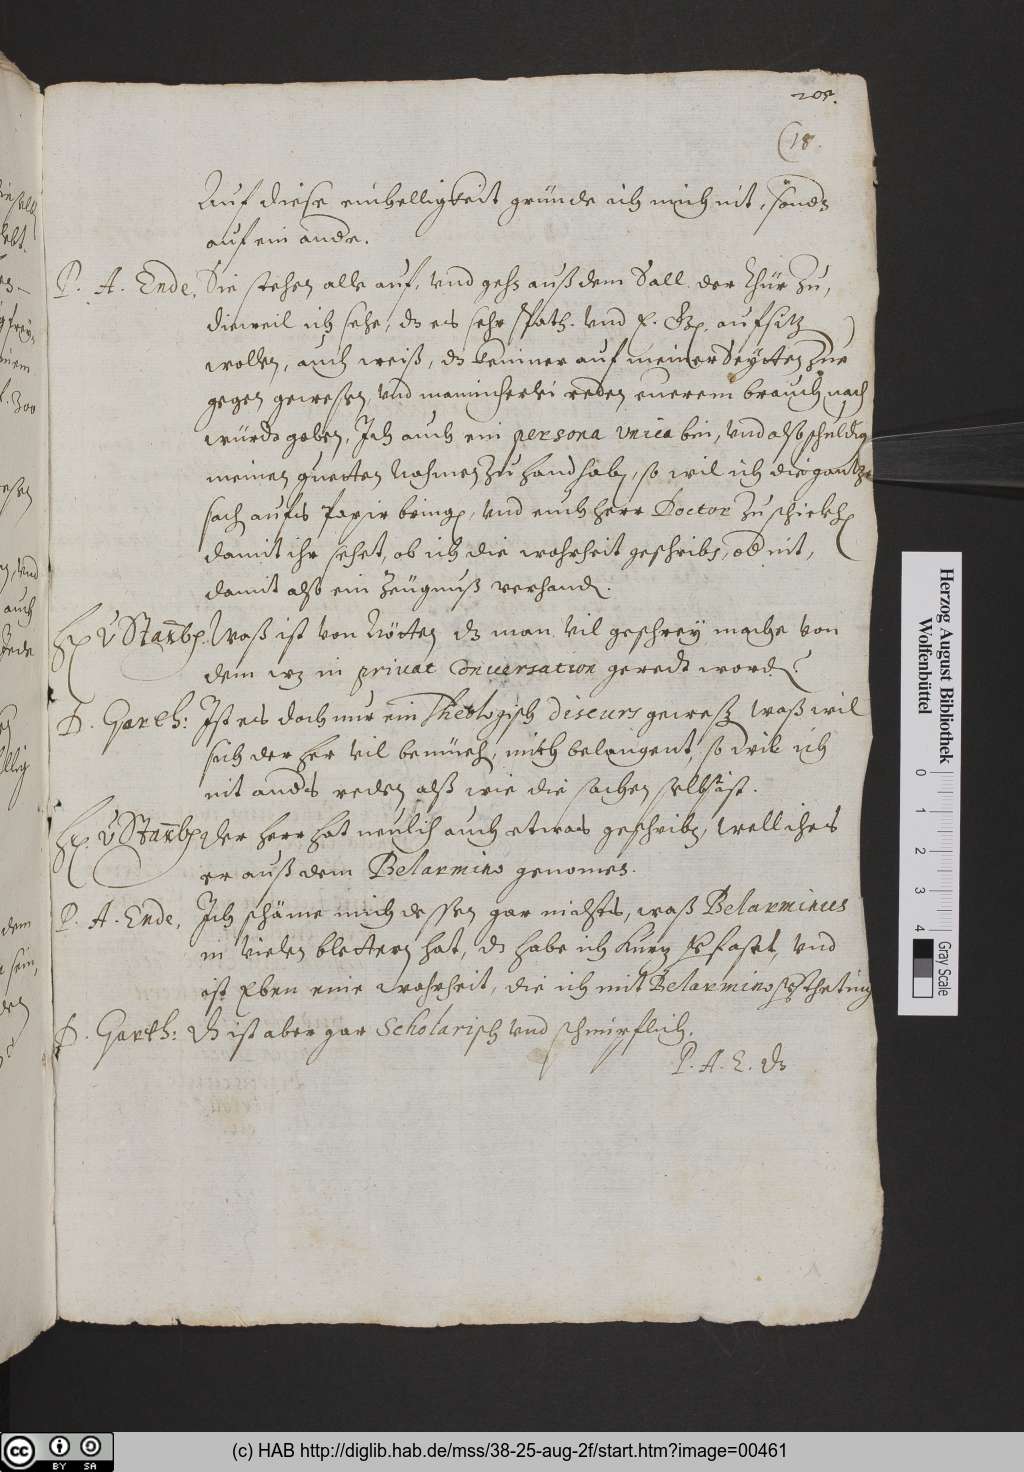 205.
(18.
Auf diese einhelligkeit gründe ich mich nit, sondz
auf ein ande.
P. A. Ende. Sie stehen alle auf, vnd gehn auß dem Sall der thür zu,
dieweil ich sehe, dz es sehr spath. vnd E. aufsitz
wollen, auch weiß, dz keinner auf meiner Seÿtten zue
gegen gewessen, vnd mannicherlei reden, euerem brauch nach
würdt geben, Ich auch ein persona vnica bin, vnd alß schuldig
meinen guetten Nahmen zu handhaben, so wil ich die gantze
sach aufs Papir bringen, vnd euch herr Doctor zu schickhen
damit ihr sehet, ob ich die wahrheit geschriben, od nit,
damit alß ein Zeügnuß verhanden.
H. v Staubp. Waß ist von Nötten dz man vil geschreÿ mache von
dem wz in priuat Conuersation geredt worden?
D. Garth: Ist es doch nur ein Theologisch discurs gewest, waß wil
sich der her vil bemüeh, mich belangent, so wil ich
nit ands reden alß wie die sachen selbs ist.
H. v Staubp Der herr hat neulich auch etwas geschriben, wellches
er auß dem Belarmino genomen.
P. A. Ende. Ich schäme mich dessen gar nichts, waß Belarminus
in vielen blettern hat, dz habe ich kurz gefasst, vnd
ist Eben eine wahrheit, die ich mit Belarmino
D. Garth: Dz ist aber gar Scholarisch vnd schimpflich.
P. A. E. dz
Herzog August Bibliothek
Wolfenbüttel
0 1 2 3 4
Gray Scale
(c) HAB http://diglib.hab.de/mss/38-25-aug-2f/start.htm?image=00461
cc BY SA